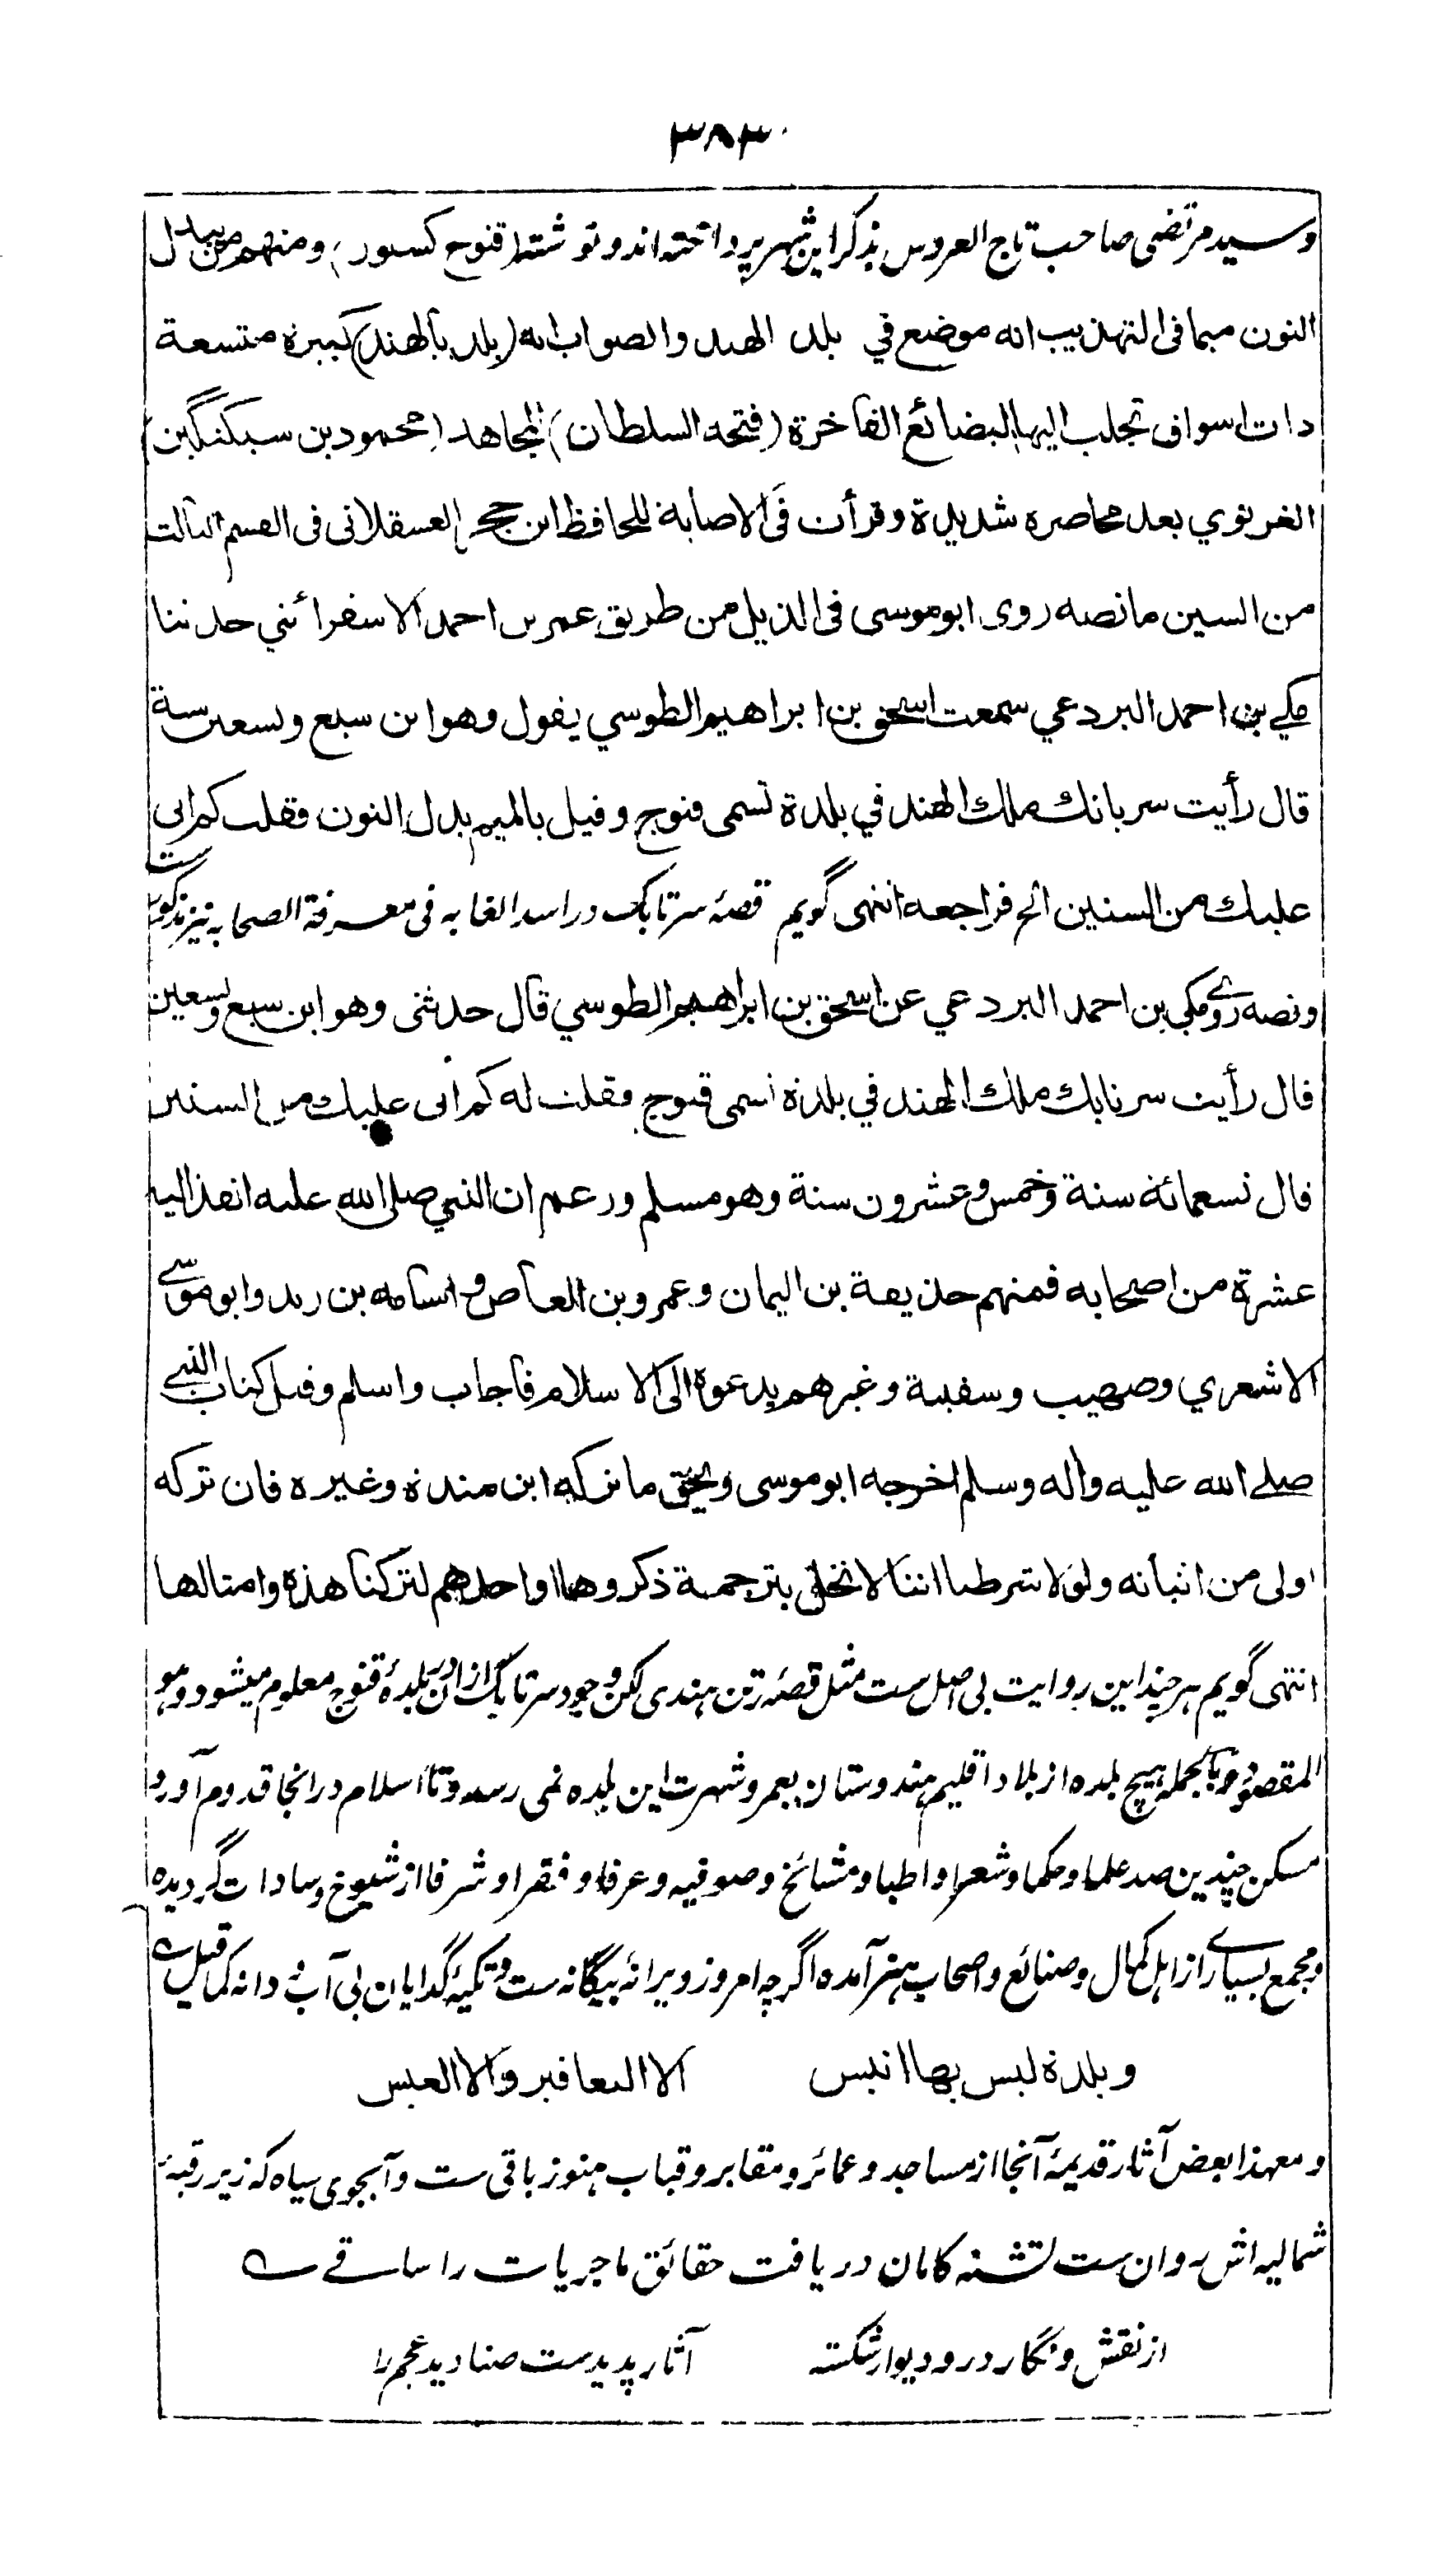 ۳۸۳
وسید مرتضی صاحب تاج العروس بذکر این شهر پرداخته اند و نوشته (قنوج کسنور) ومنهم من یبدل
النون میما فی التهذیب انه موضع فی بلد الهند والصواب انه (بلد بالهند) کبیرة متسعة
ذات اسواق تجلب الیها البضائع الفاخرة (فتحه السلطان) المجاهد (محمود بن سبکتگین)
الغزنوي بعد محاصرة شدیدة وقرأت فی الاصابة للحافظ ابن حجر العسقلانی فی القسم الثالث
من السین ما نصه روی ابو موسی فی الذیل من طریق عمر بن احمد الاسفرائنی حدثنا
مکي بن احمد البردعي سمعت اسحق بن ابراهیم الطوسي یقول وهو ابن سبع وتسعین سنة
قال رأیت سربانك ملك الهند في بلدة تسمی قنوج وقیل بالمیم بدل النون فقلت کم اتی
علیك من السنین الخ فراجعه انتهی گویم قصهٔ سرتابک در اسد الغابه فی معرفة الصحابه نیز مذکورست
ونصه روی مکی بن احمد البردعي عن اسحق بن ابراهیم الطوسي قال حدثنی وهو ابن سبع وتسعین
قال رأیت سرتابك ملك الهند في بلدة تسمی قنوج فقلت له کم اتی علیك من السنین
قال تسعمائة سنة وخمس وعشرون سنة وهو مسلم وزعم ان النبي صلی الله علیه انفذ الیه
عشرة من اصحابه فمنهم حذیفة بن الیمان وعمرو بن العاص واسامه بن زید وابو موسی
الاشعري وصهیب وسفینة وغیرهم یدعوه الی الاسلام فاجاب واسلم وقبل کتاب النبی
صلی الله علیه واله وسلم اخرجه ابو موسی وبحق ما ترکه ابن مندة وغیره فان ترکه
اولی من اثباته ولولا شرطنا اننا لا نخل بترجمة ذکروها او احدهم لترکنا هذه وامثالها
انتهی گویم هر چند این روایت بی اصل ست مثل قصهٔ رتن هندی لکن وجود سرتابک ازان در بلدهٔ قنوج معلوم میشود وهو
المقصود وبالجمله هیچ بلده از بلاد اقلیم هندوستان بعمر و شهرت این بلده نمی رسد و تا اسلام در انجا قدوم آورد
مسکن چندین صد علما و حکما و شعرا و اطبا و مشائخ و صوفیه و عرفا و فقرا و شرفا از شیوخ و سادات گردیده
ومجمع بسیاری از اهل کمال و صنائع و اصحاب هنر آمده اگرچه امروز ویرانهٔ بیگانه ست و تکیهٔ گدایان بی آب و دانه کما قیل
وبلدة لیس بها انیس الا الیعافیر والا العیس
ومعهذا بعض آثار قدیمهٔ آنجا از مساجد و عمائر و مقابر و قباب هنوز باقی ست و آبجوی سیاه که زیر رقبهٔ
شمالیه اش روان ست تشنه کامان دریافت حقائق ماجریات را ساقی
از نقش و نگار در و دیوار شکسته آثار پدیدست صنادید عجم را